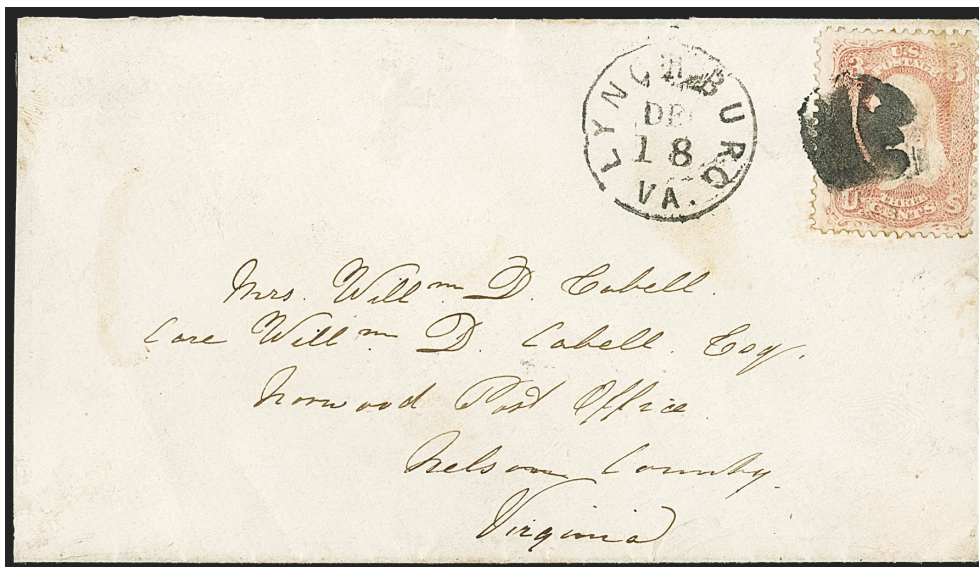 LYNCHBURG
DE
18
VA.
3 U.S. 3
POSTAGE
THREE
U CENTS S
Mrs. Willm. D. Cabell.
Care Willm. D. Cabell. Esq.
Norwood Post Office.
Nelson County.
Virginia